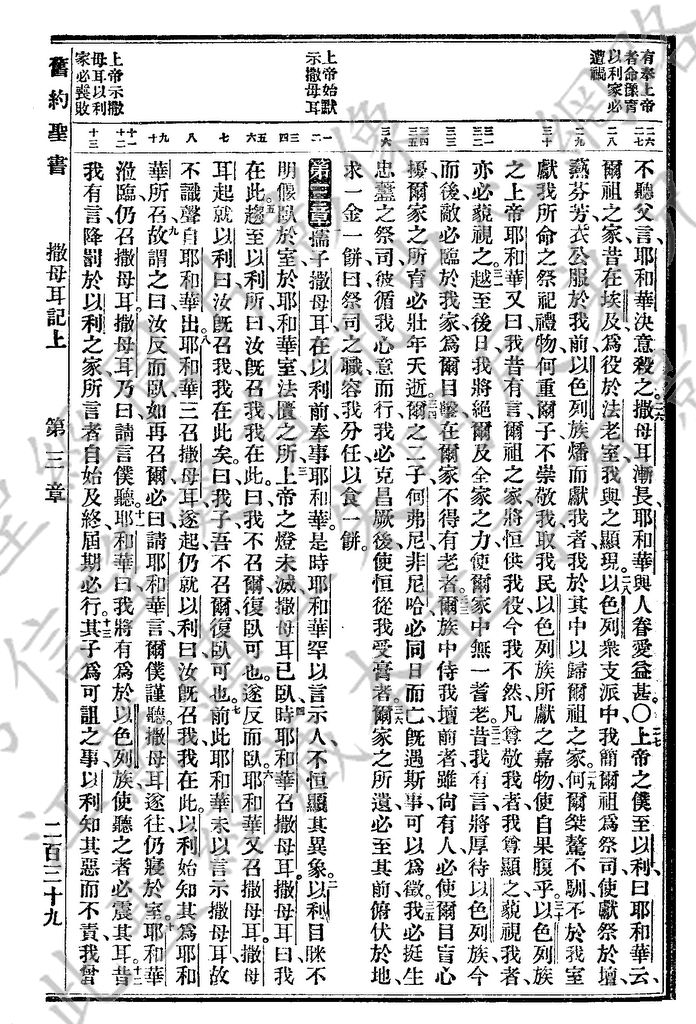 有奉上帝
者命傑言
以利家必
遭禍
上帝始默
示撒母耳
上帝示撒
母耳以利
家必喪敗
二六
二七
二八
二九
三十
三一
三二
三三
三四
三五
三六
一
二
三
四
五
六
七
八
九
十
十一
十二
十三
不聽父言、耶和華決意殺之、撒母耳漸長、耶和華與人眷愛益甚。〇上帝之僕至以利、曰、耶和華云、
爾祖之家、昔在埃及、爲役於法老室、我與之顯現、以色列衆支派中、我簡爾祖爲祭司、使獻祭於壇、
爇芬芳、衣公服於我前、以色列族燔而獻我者、我於其中以歸爾祖之家、何爾桀驁不馴、不於我室
獻我所命之祭祀禮物、何重爾子、不崇敬我、取我民以色列族所獻之嘉物、使自果腹乎、以色列族
之上帝耶和華又曰、我昔有言、爾祖之家、將恒供我役、今我不然、凡尊敬我者、我尊顯之、藐視我者、
亦必藐視之、越至後日、我將絕爾及全家之力、使爾家中無一耆老、昔我有言、將厚待以色列族、今
而後敵必臨於我家、爲爾目擊、在爾家不得有老者、爾族中侍我壇前者、雖尙有人、必使爾目盲心
擾、爾家之所育、必壯年夭逝、爾之二子、何弗尼非尼哈必同日而亡、旣遇斯事、可以爲徵、我必挺生
忠藎之祭司、彼循我心意而行、我必克昌厥後、使恒從我受膏者、爾家之所遺、必至其前、俯伏於地、
求一金一餅、曰、祭司之職、容我分任、以食一餅。
第三章 孺子撒母耳在以利前奉事耶和華。是時耶和華罕以言示人、不恒顯其異象、以利目眯不
明、偃臥於室、於耶和華室法匱之所、上帝之燈未滅、撒母耳已臥、時耶和華召撒母耳、撒母耳曰、我
在此、趨至以利所、曰、汝旣召我、我在此、曰、我不召爾、復臥可也、遂反而臥、耶和華又召撒母耳、撒母
耳起、就以利、曰、汝旣召我、我在此矣、曰、我子、吾不召爾、復臥可也、前此耶和華未以言示撒母耳、故
不識聲自耶和華出、耶和華三召撒母耳、遂起、仍就以利、曰、汝旣召我、我在此、以利始知其爲耶和
華所召、故謂之曰、汝反而臥、如再召爾、必曰、請耶和華言、爾僕謹聽、撒母耳遂往、仍寢於室、耶和華
涖臨、仍召撒母耳、撒母耳乃曰、請言、僕聽、耶和華曰、我將有爲於以色列族、使聽之者必震其耳、昔
我有言、降罰於以利之家、所言者自始及終、屆期必行。其子爲可詛之事、以利知其惡而不責、我嘗
舊約聖書 撒母耳記上 第三章 二百三十九